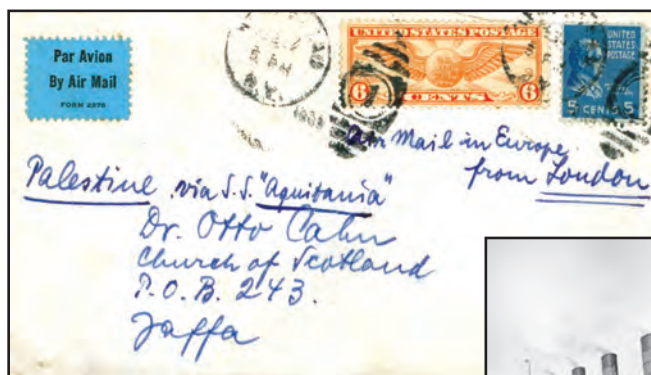 Par Avion
By Air Mail
FORM 2978
UNITED STATES POSTAGE
6 CENTS 6
UNITED
STATES
POSTAGE
5 CENTS 5
Air Mail in Europe
from London
Palestine via S.S. "Aquitania"
Dr. Otto Cahn
Church of Scotland
P.O.B. 243.
Jaffa